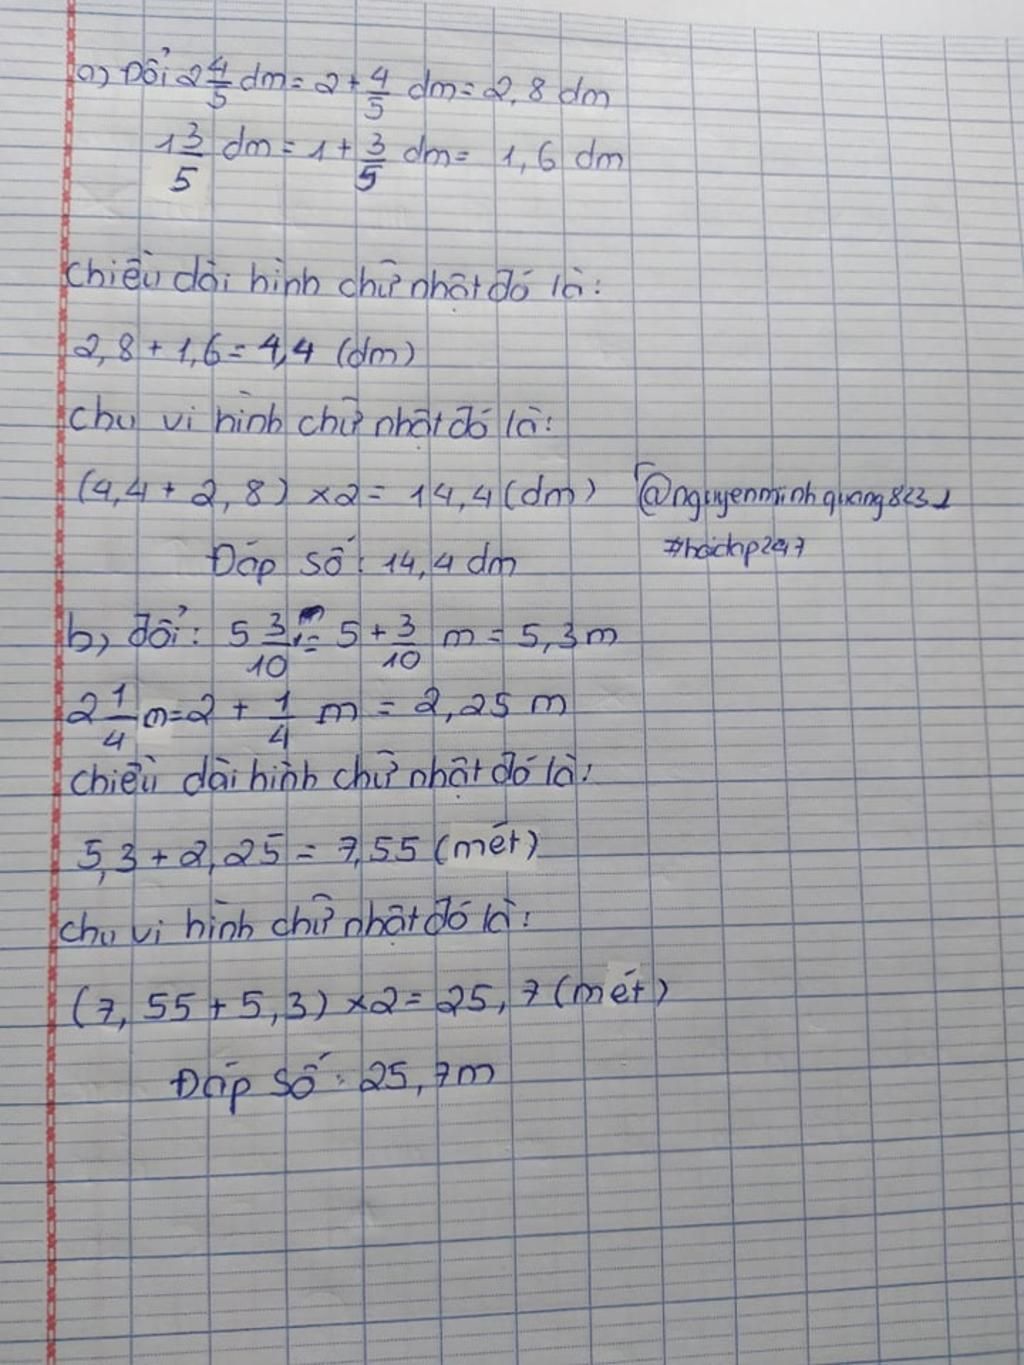 a) Đổi 2 4/5 dm = 2 + 4/5 dm = 2,8 dm
1 3/5 dm = 1 + 3/5 dm = 1,6 dm
Chiều dài hình chữ nhật đó là:
2,8 + 1,6 = 4,4 (dm)
Chu vi hình chữ nhật đó là:
(4,4 + 2,8) × 2 = 14,4 (dm) @nguyenminhquang8231
Đáp số: 14,4 dm #hoidap247
b) đổi: 5 3/10 m = 5 + 3/10 m = 5,3 m
2 1/4 m = 2 + 1/4 m = 2,25 m
Chiều dài hình chữ nhật đó là:
5,3 + 2,25 = 7,55 (mét)
Chu vi hình chữ nhật đó là:
(7,55 + 5,3) × 2 = 25,7 (mét)
Đáp số: 25,7m